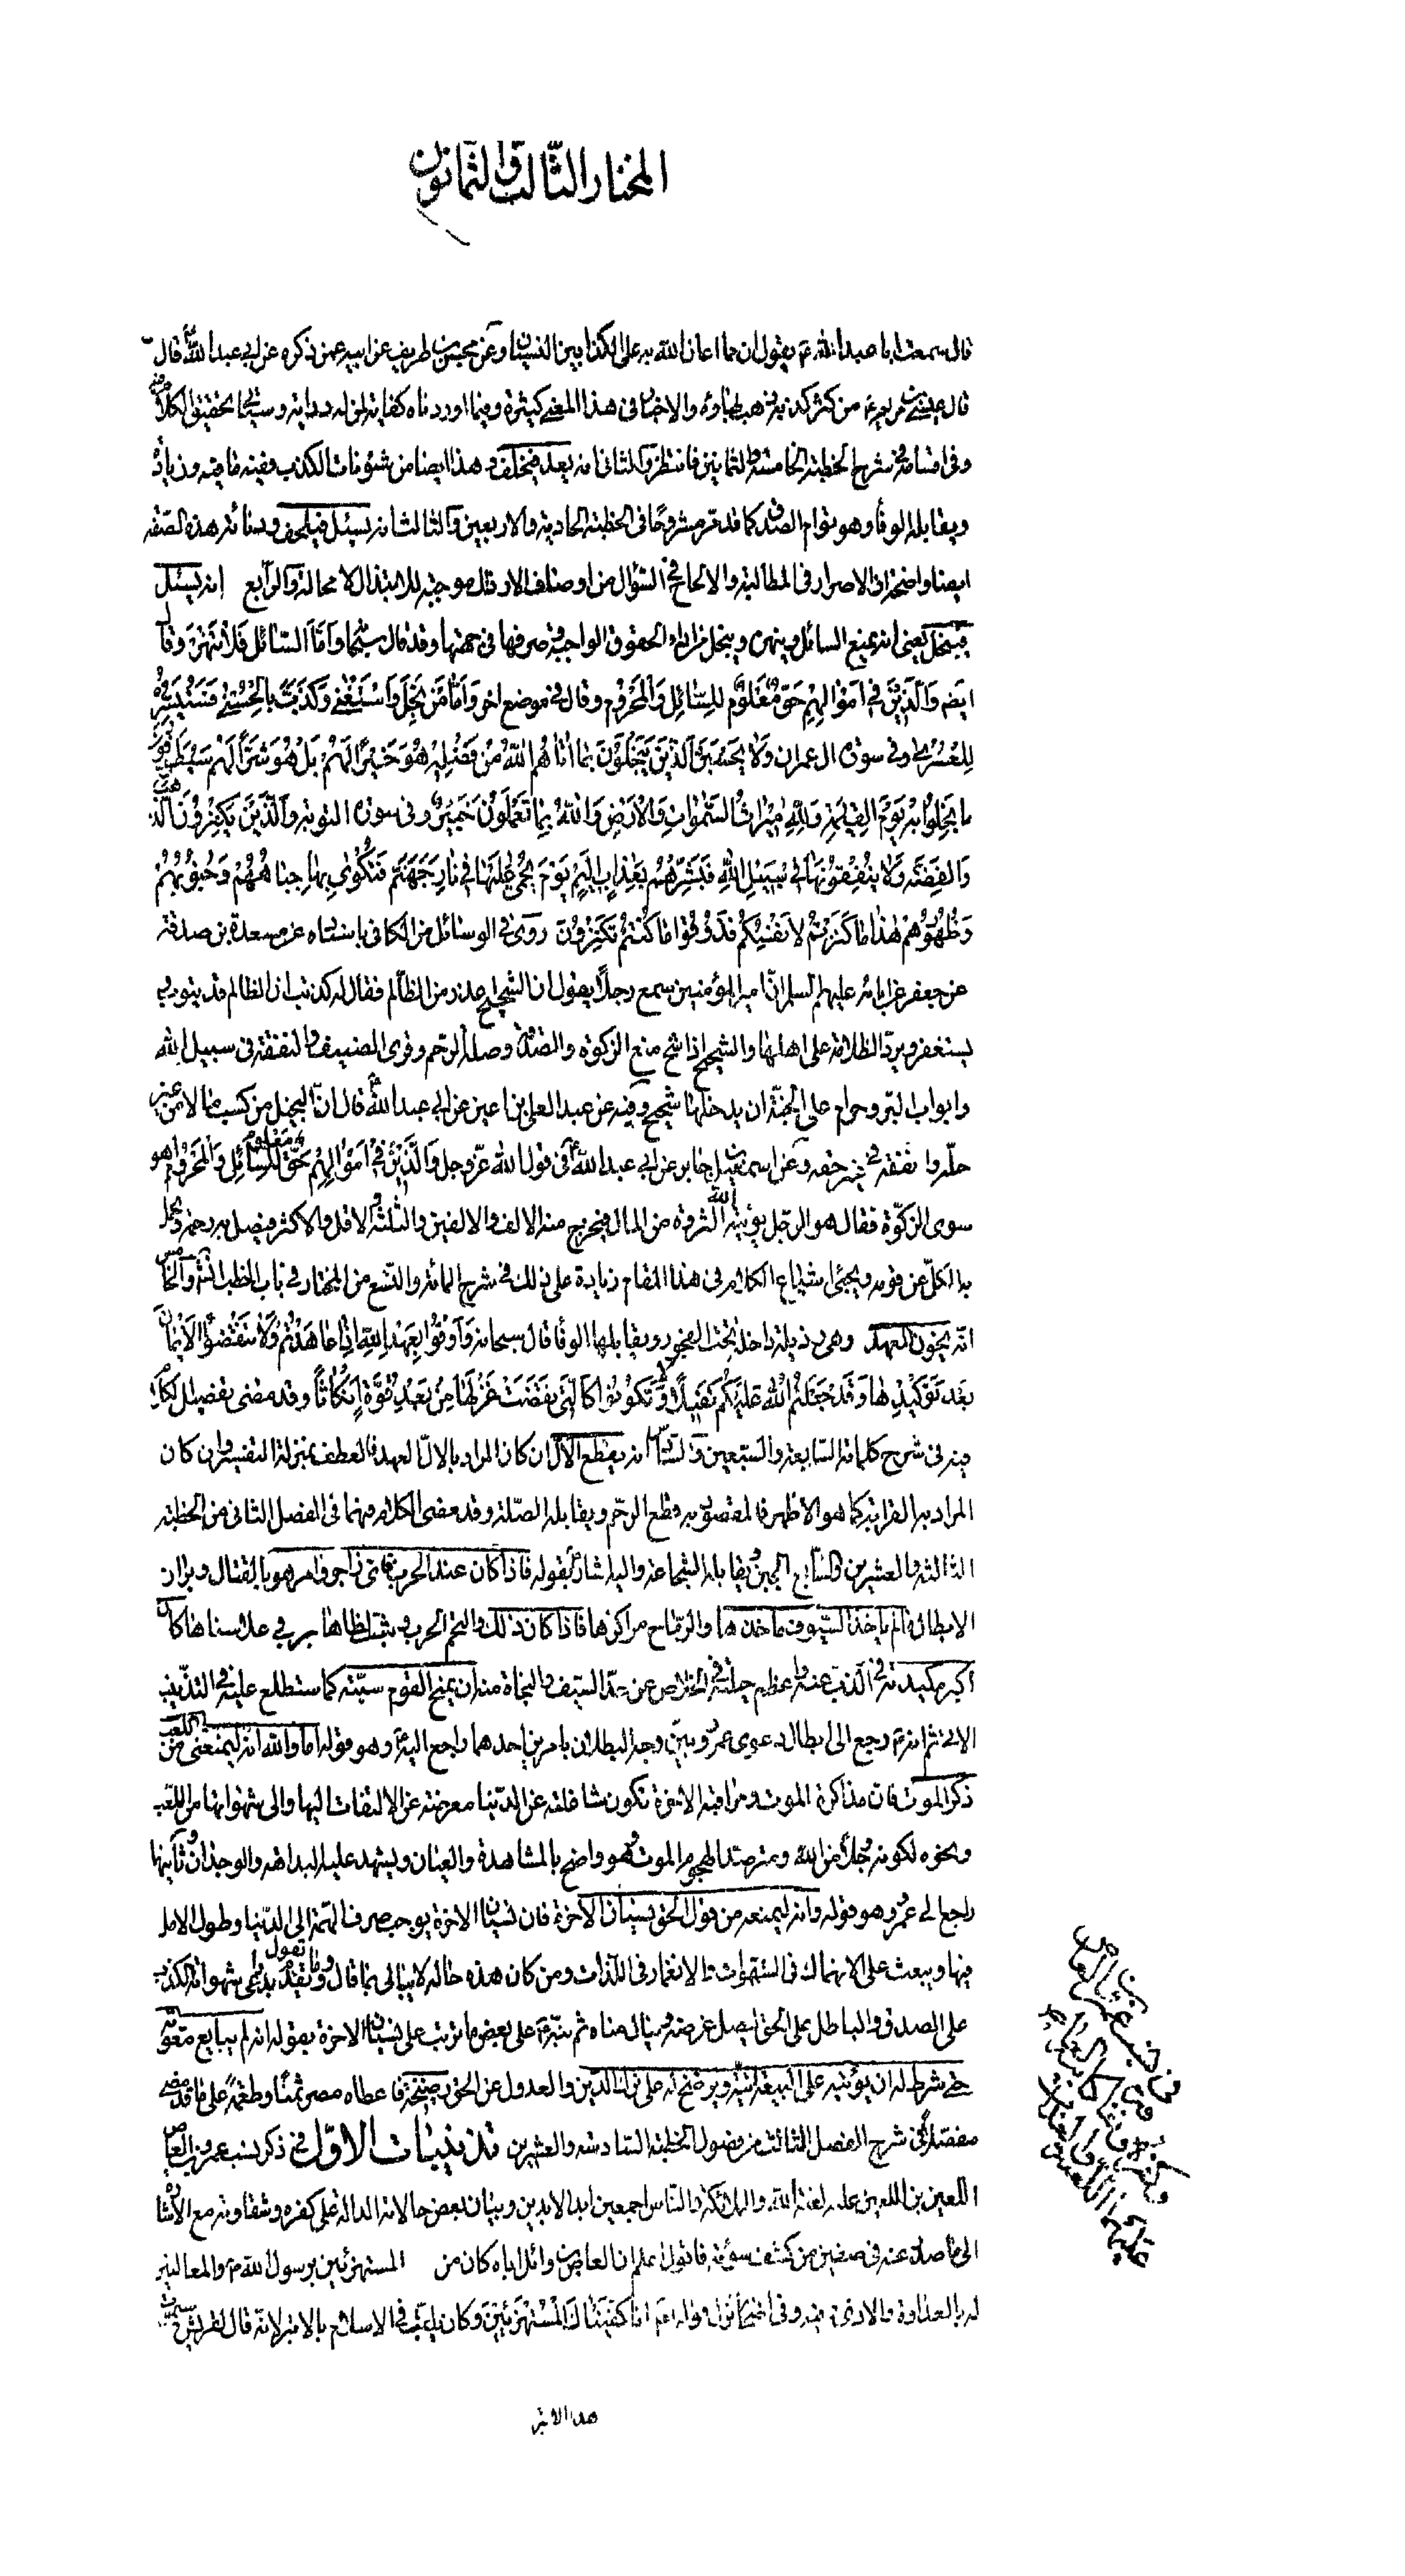 المختار الثالث والثمانون
قال سمعت ابا عبد الله ع يقول ان مما اعان الله به على الكذابين النسيان وعن محسن بن طريف عن ابيه عمن ذكره عن ابي عبد الله ع قال
قال عيسى بن مريم ع من كثر كذبه ذهب بهاؤه والاخبار في هذا المعنى كثيرة وفيما اوردناه كفاية لمن له دراية وسيأتي تحقيق الكلام فيه
وفي اقسامه في شرح الخطبة الخامسة والثمانين فانتظر والثاني انه يعد فيخلف وهذا ايضا من شئونات الكذب وفيه ما فيه وزيادة
ويقابله الوفاء وهو توأم الصدق كما قد مر مشروحا في الخطبة الحادية والاربعين والثالث انه يسئل فيلحف ودنائة هذه الصفة
ايضا واضحة اذ الاصرار في المطالبة والالحاح في السؤال من اوصاف الارذال موجبة للابتذال لا محالة والرابع انه يسئل
فيبخل يعني انه يمنع السائل وينهره ويبخل من اداء الحقوق الواجبة وصرفها في جهتها وقد قال سبحانه وَاَمَّا السّائِلَ فَلا تَنْهَرْ وقال
ايضا وَالَّذينَ في اَمْوالِهِمْ حَقٌّ مَعْلُومٌ لِلسّائِلِ وَالْمَحْرُومِ وقال في موضع اخر وَاَمّا مَنْ بَخِلَ وَاسْتَغْنى وَكَذَّبَ بِالْحُسْنى فَسَنُيَسِّرُهُ
لِلْعُسْرى وفي سورة ال عمران وَلا يَحْسَبَنَّ الَّذينَ يَبْخَلُونَ بِما اتاهُمُ اللهُ مِنْ فَضْلِهِ هُوَ خَيْرًا لَهُمْ بَلْ هُوَ شَرٌّ لَهُمْ سَيُطَوَّقُونَ
ما بَخِلُوا بِهِ يَوْمَ الْقِيمَةِ وَلِلّهِ ميراثُ السَّمواتِ وَالْاَرْضِ وَاللهُ بِما تَعْمَلُونَ خَبيرٌ وفي سورة التوبة وَالَّذينَ يَكْنِزُونَ الذَّهَبَ
وَالْفِضَّةَ وَلا يُنْفِقُونَها في سَبيلِ اللهِ فَبَشِّرْهُمْ بِعَذابٍ اَليمٍ يَوْمَ يُحْمى عَلَيْها في نارِ جَهَنَّمَ فَتُكْوى بِها جِباهُهُمْ وَجُنُوبُهُمْ
وَظُهُورُهُمْ هذا ما كَنَزْتُمْ لِاَنْفُسِكُمْ فَذُوقُوا ما كُنْتُمْ تَكْنِزُونَ روى في الوسائل من الكافي باسناده عن مسعدة بن صدقة
عن جعفر عن ابائه عليهم السلم ان امير المؤمنين سمع رجلا يقول ان الشحيح اعذر من الظالم فقال له كذبت ان الظالم قد يتوب و
يستغفر ويرد الظلامة على اهلها والشحيح اذا شح منع الزكوة والصدقة وصلة الرحم وقرى الضيف والنفقة في سبيل الله
وابواب البر وحرام على الجنة ان يدخلها شحيح وفيه عن عبد العلى بن اعين عن ابي عبد الله ع قال ان البخيل من كسب مالا من غير
حله وانفقه في غير حقه وعن اسمعيل بن جابر عن ابي عبد الله ع في قول الله عز وجل وَالَّذينَ في اَمْوالِهِمْ حَقٌّ مَعْلُومٌ لِلسّائِلِ وَالْمَحْرُومِ اهو
سوى الزكوة فقال هو الرجل يؤتيه الله الثروة من المال فيخرج منه الالف والالفين والثلثة والاقل والاكثر فيصل به رحمه ويحمل
به الكل عن قومه ويجئ اشباع الكلام في هذا المقام زيادة على ذلك في شرح المائة والتسع من المختار في باب الخطب والخامس
انه يخون العهد وهي رذيلة داخلة تحت الفجور ويقابلها الوفا قال سبحانه وَاَوْفُوا بِعَهْدِ اللهِ اِذا عاهَدْتُمْ وَلا تَنْقُضُوا الْاَيْمانَ
بَعْدَ تَوْكيدِها وَقَدْ جَعَلْتُمُ اللهَ عَلَيْكُمْ كَفيلًا وَلا تَكُونُوا كَالَّتي نَقَضَتْ غَزْلَها مِنْ بَعْدِ قُوَّةٍ اَنْكاثًا وقد مضى تفصيل الكلام
فيه في شرح كلماته السابعة والسبعين والسادس انه يقطع الال ان كان المراد بالال العهد فالعطف بمنزلة التفسير وان كان
المراد به القرابة كما هو الاظهر فالمقصود به قطع الرحم ويقابله الصلة وقد مضى الكلام فيهما في الفصل الثاني من الخطبة
الثالثة والعشرين والسابع الجبن ويقابله الشجاعة واليه اشار بقوله فاذا كان عند الحرب فاي زاجر وامر هو بالقتال وبراز
الابطال ما لم ياخذ السيوف ماخذها والرماح مراكزها فاذا كان ذلك والتحم الحرب وشبت لظاها برق وعلا سناها كان
اكبر مكيدته في الذب عنه واعظم حيلته في الخلاص عن حد السيف والنجاة منه ان يمنح القوم سبته كما ستطلع عليه في التذنيب
الاتي ثم انه ع رجع الى ابطال دعوى عمرو وبين وجه البطلان بامرين احدهما راجع اليه ع وهو قوله اما والله انه ليمنعني من اللعب
ذكر الموت فان مذاكرة الموت ومراقبة الاخرة تكون شاغلة عن الدنيا معرضة عن الالتفات اليها والى شهواتها من اللعب
ونحوه لكونه وجلا من الله ومترصدا لهجوم الموت وهو واضح بالمشاهدة والعيان ويشهد عليه البداهة والوجدان وثانيهما
راجع الى عمرو وهو قوله وانه ليمنعه من قول الحق نسيان الاخرة فان نسيان الاخرة يوجب صرف الهمة الى الدنيا وطول الامل
فيها ويبعث على الانهماك في الشهوات والانغمار في اللذات ومن كان هذه حاله لا يبالي بما قال وما يقول ويقدم بداعي شهواته الكذب
على الصدق والباطل على الحق ليصل غرضه وينال مناه ثم نبه ع على بعض ما ترتب على نسيان الاخرة بقوله انه لم يبايع معوية
حتى شرط له ان يؤتيه على البيعة اتية ويرضخ له على ترك الدين والعدول عن الحق رضيخة فاعطاه مصر ثمنا وطعمة على ما قد مضى
مفصلا في شرح الفصل الثالث من فصول الخطبة السادسة والعشرين تذنيبات الاول في ذكر نسب عمرو بن العاص
اللعين بن اللعين عليه لعنة الله والملائكة والناس اجمعين ابد الابدين وبيان بعض حالاته الدالة على كفره وشقاوته مع الاشارة
الى ما صدر عنه في صفين من كشف سوئته فاقول اعلم ان العاص بن وائل اباه كان من المستهزئين برسول الله ص والمعالنين
له بالعداوة والاذى وفيه وفي اصحابه نزل قوله تعالى اِنّا كَفَيْناكَ الْمُسْتَهْزِئينَ وكان يلقب في الاسلام بالابتر لانه قال لقريش سيموت
هذا الابتر
في نسب عمرو بن العاص